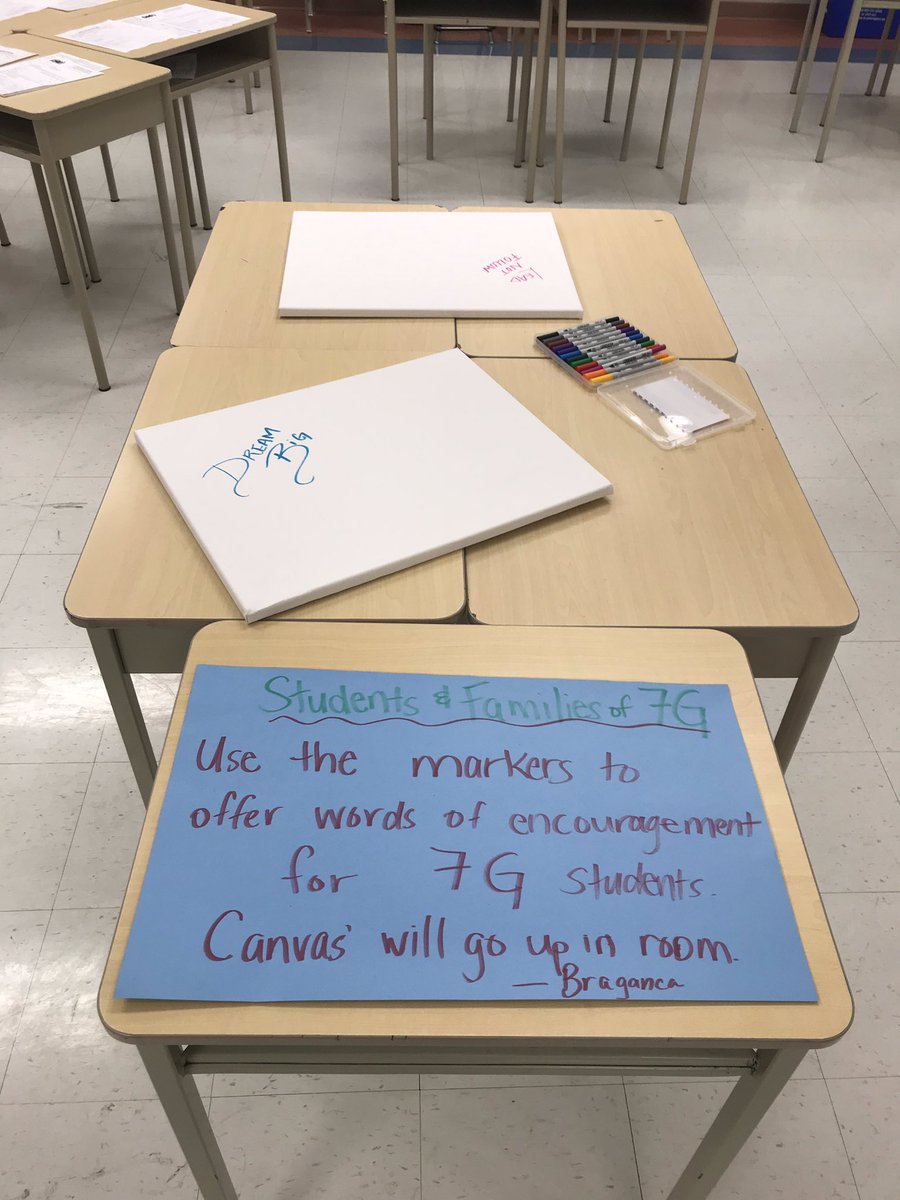 LEAD
NOT
FOLLOW
DREAM
BiG
Students & Families of 7G
Use the markers to
offer words of encouragement
for 7G students.
Canvas' will go up in room.
— Braganca